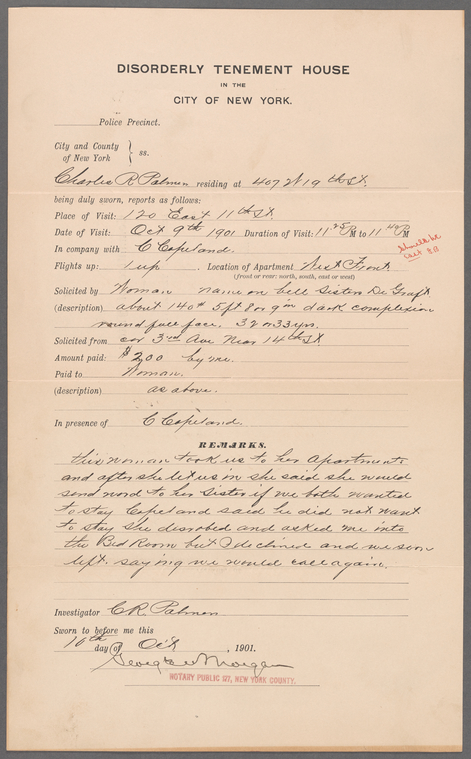 DISORDERLY TENEMENT HOUSE
IN THE
CITY OF NEW YORK.
Police Precinct.
City and County
of New York } ss.
Charles R Palmer residing at 407 W 19th St.
being duly sworn, reports as follows:
Place of Visit: 120 East 11th St.
Date of Visit: Oct 9th 1901 Duration of Visit: 11 25 PM to 11 40 PM
In company with C Copeland.
Flights up: 1 up. Location of Apartment West Front
(front or rear: north, south, east or west)
Solicited by Woman name on bell Sisters De Graft
(description) about 140# 5ft 8 or 9 in dark complexion
round full face. 32 or 33 yrs.
Solicited from cor 3rd Ave Near 14th St
Amount paid: $2.00 by me.
Paid to Woman.
(description) as above.
In presence of C Copeland.
REMARKS.
this woman took us to her Apartments
and after she let us in she said she would
send word to her Sister if we both wanted
to stay Copeland said he did not want
to stay She disrobed and asked me into
the Bed Room but I declined and we soon
left. saying we would call again.
Investigator C.R. Palmer
Sworn to before me this
10th day of Oct, 1901.
George W Morgan
NOTARY PUBLIC 117, NEW YORK COUNTY.
should be
East 13